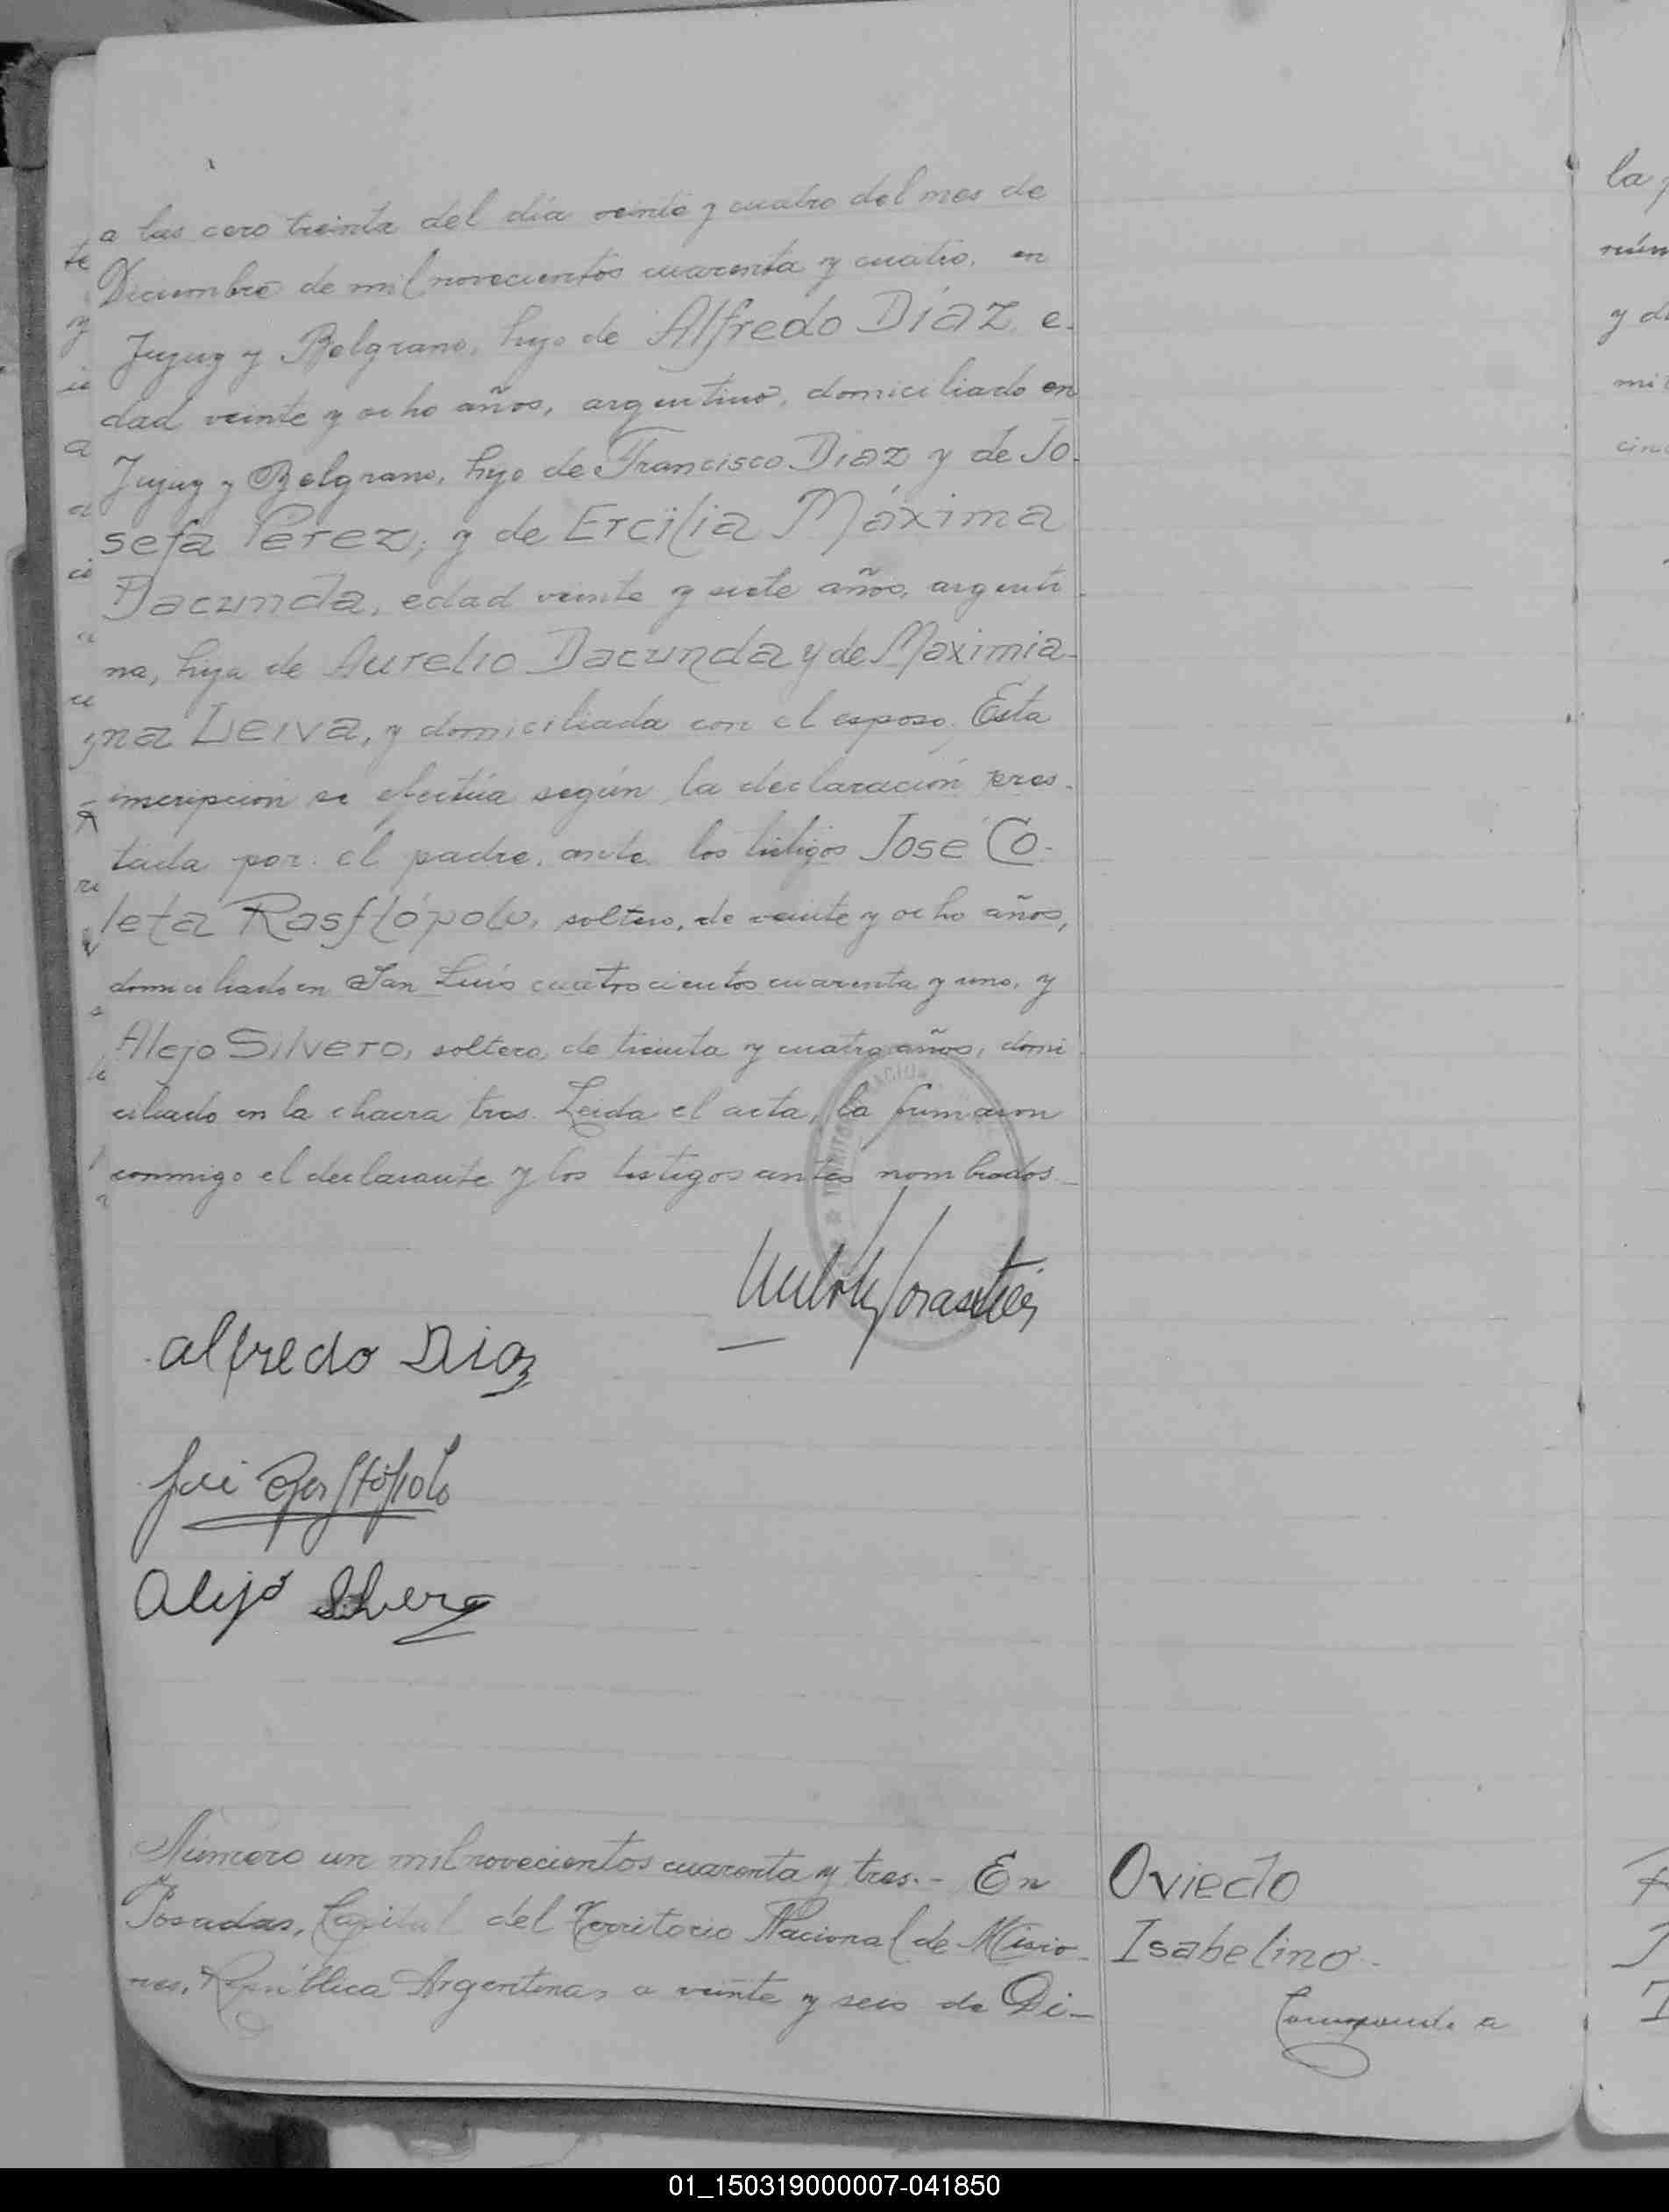 a las cero treinta del día veinte y cuatro del mes de
Diciembre de mil novecientos cuarenta y cuatro, en
Jujuy y Belgrano, hijo de Alfredo Díaz, e-
dad veinte y ocho años, argentino, domiciliado en
Jujuy y Belgrano, hijo de Francisco Diaz y de Jo-
sefa Perez; y de Ercilia Máxima
Dacunda, edad veinte y siete años, argenti
na, hija de Aurelio Dacunda y de Maximia-
na Leiva, y domiciliada con el esposo. Esta
inscripción se efectúa según la declaración pres-
tada por el padre, ante los testigos José Co-
leta Rasftópolo, soltero, de veinte y ocho años,
domiciliado en San Luis cuatrocientos cuarenta y uno, y
Alejo Silvero, soltero, de treinta y cuatro años, domi
ciliado en la chacra tres. Leída el acta, la firmaron
conmigo el declarante y los testigos antes nombrados.
alfredo Diaz
Alejo Silvero
Número un mil novecientos cuarenta y tres.- En
Posadas, Capital del Territorio Nacional de Misio-
nes, República Argentina, a veinte y seis de Di-
Oviedo
Isabelino.-
Corresponde a
la
y d
01_150319000007-041850